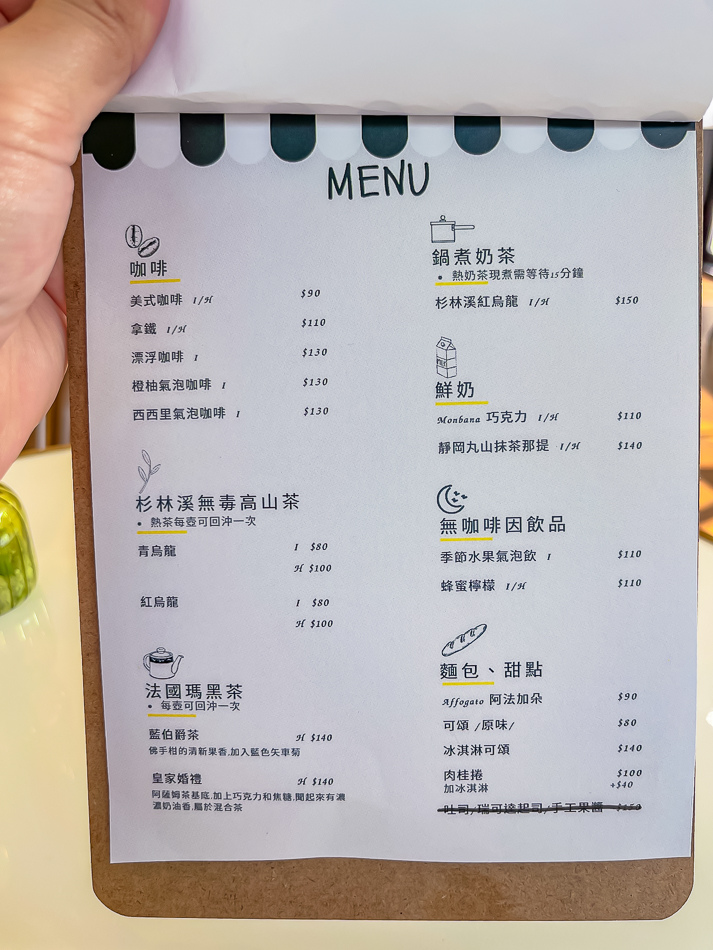 MENU
咖啡
美式咖啡 I/H $90
拿鐵 I/H $110
漂浮咖啡 I $130
橙柚氣泡咖啡 I $130
西西里氣泡咖啡 I $130
杉林溪無毒高山茶
• 熱茶每壺可回沖一次
青烏龍 I $80
H $100
紅烏龍 I $80
H $100
法國瑪黑茶
• 每壺可回沖一次
藍伯爵茶 H $140
佛手柑的清新果香,加入藍色矢車菊
皇家婚禮 H $140
阿薩姆茶基底,加上巧克力和焦糖,聞起來有濃
濃奶油香,屬於混合茶
鍋煮奶茶
• 熱奶茶現煮需等待15分鐘
杉林溪紅烏龍 I/H $150
鮮奶
Monbana 巧克力 I/H $110
靜岡丸山抹茶那提 I/H $140
無咖啡因飲品
季節水果氣泡飲 I $110
蜂蜜檸檬 I/H $110
麵包、甜點
Affogato 阿法加朵 $90
可頌 /原味/ $80
冰淇淋可頌 $140
肉桂捲 $100
加冰淇淋 +$40
吐司/瑞可達起司/手工果醬